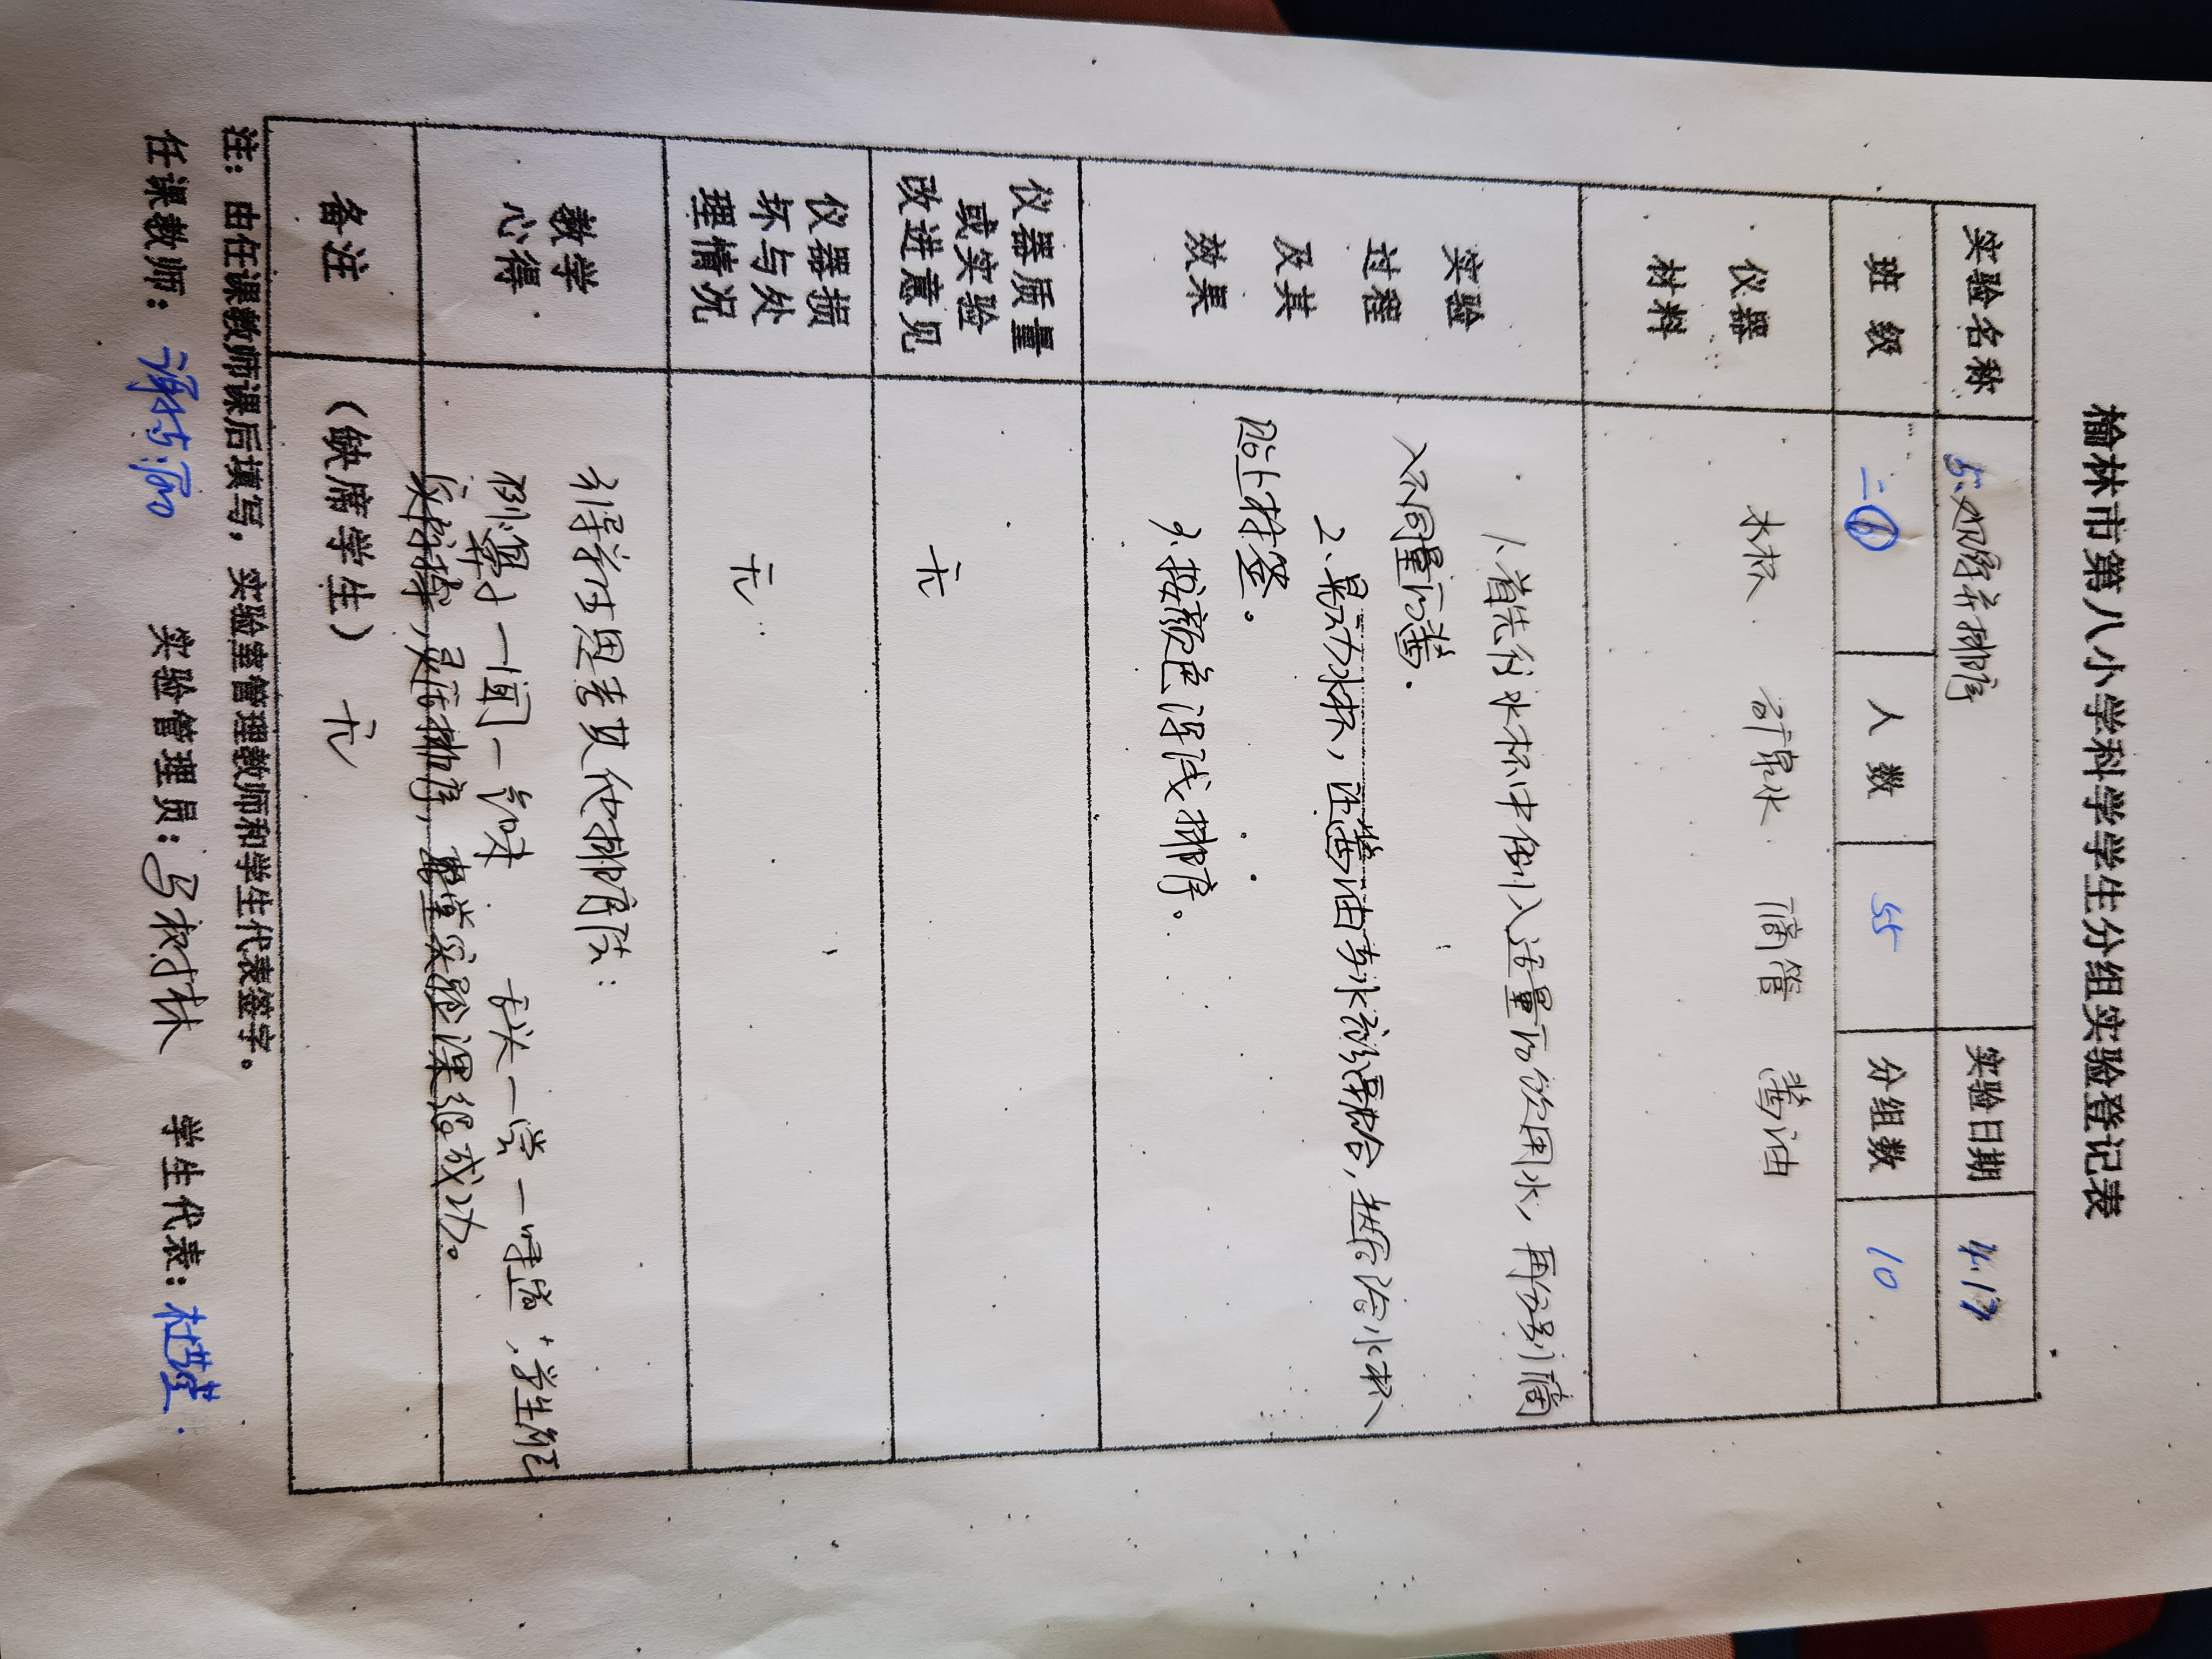 榆林市第八小学科学学生分组实验登记表
实验名称 5.观察并排序 实验日期 4.17
班 级 二(1) 人 数 55 分组数 10
仪器材料 水杯 矿泉水 滴管 酱油
实验过程及其效果
1、首先往水杯中倒入适量的饮用水，再分别滴
入不同量的酱.
2、晃动水杯，让酱油与水混合，然后给小杯
贴上标签。
3、按颜色深浅排序。
仪器质量或实验改进意见 无
仪器损坏与处理情况 无
教学心得
引导学生思考其他排序法：
耳一闻一气味 舌头一尝一味道；学生们
实验课很成功。
备注 （缺席学生） 无
注：由任课教师课后填写，实验室管理教师和学生代表签字。
任课教师： 实验管理员：马树林 学生代表：